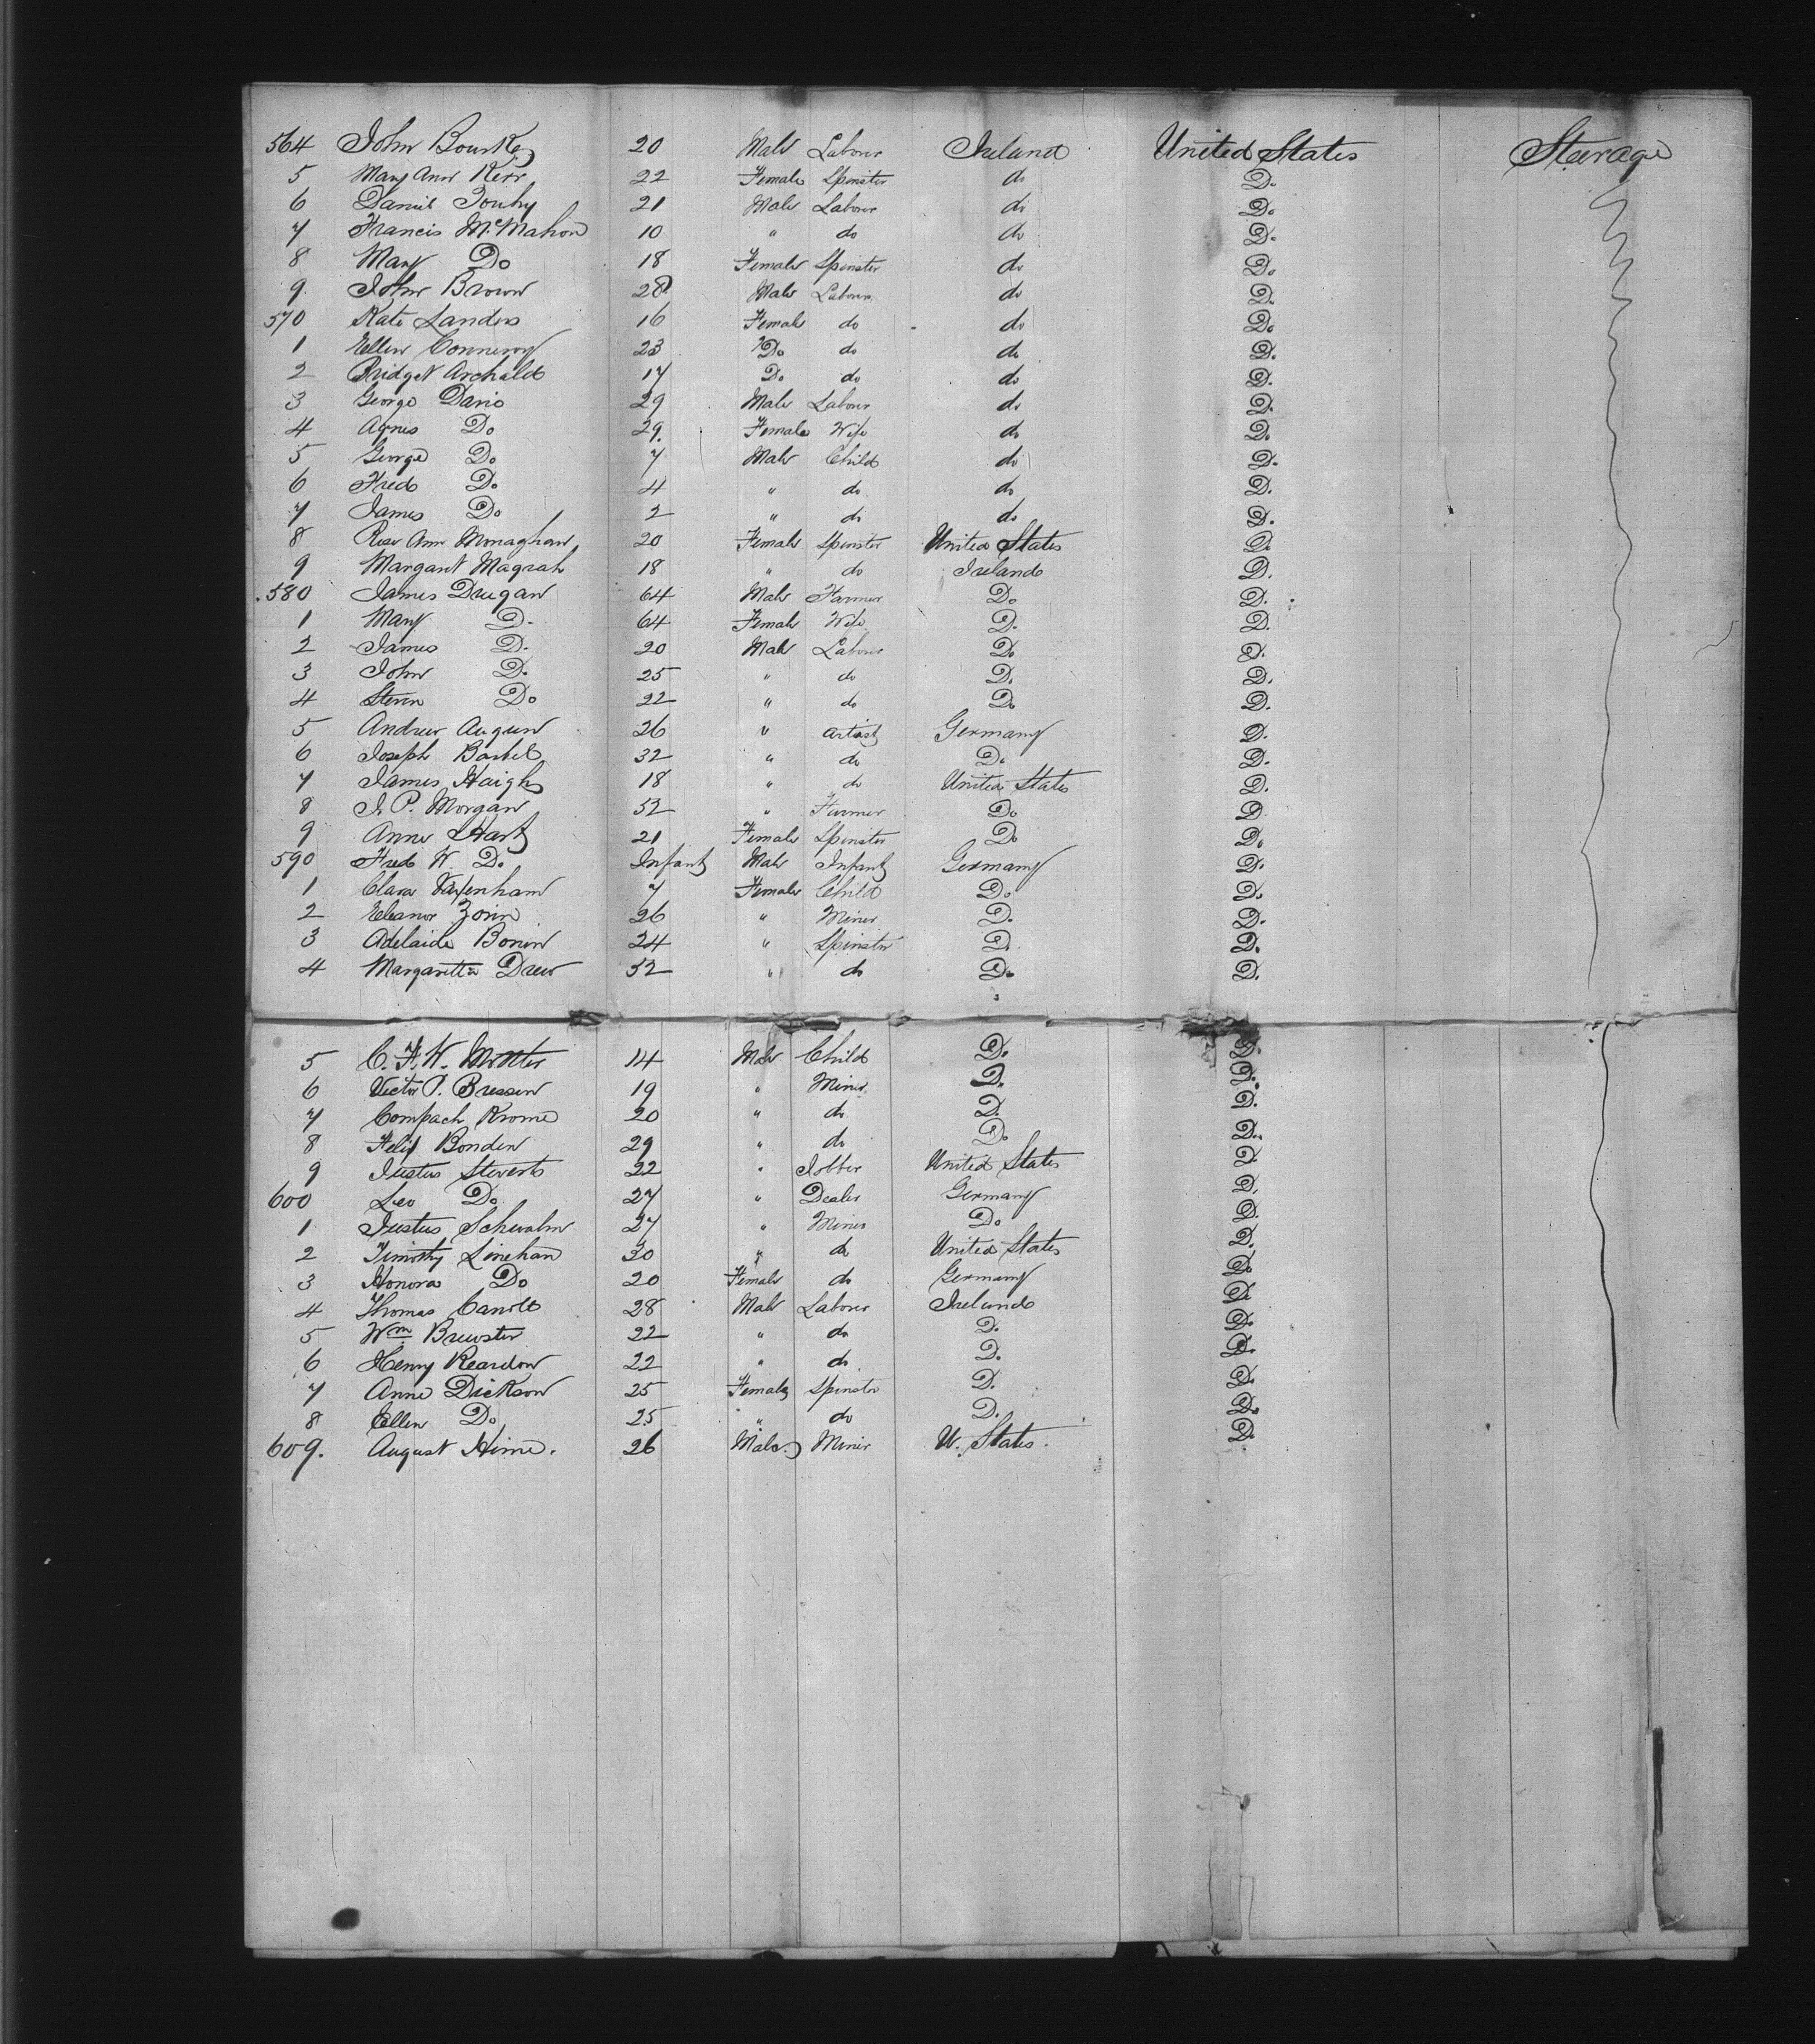 564 John Bourke 20 Male Labour Ireland United States Sterage
5 Mary Ann Kerr 22 Female Spinster do Do
6 Daniel 21 Male Labour do Do
7 Francis McMahon 10 " do do Do
8 Mary Do 18 Female Spinster do Do
9 John Brown 28 Male Labour do Do
570 Kate Landers 16 Female do do Do
1 Ellen 23 Do do do Do
2 Bridget Archald 17 Do do do Do
3 George Davis 29 Male Labour do Do
4 Agnes Do 29 Female Wife do Do
5 George Do 7 Male Child do Do
6 Fred Do 4 " do do Do
7 James Do 2 " do do Do
8 Rose Ann Monaghan 20 Female Spinster United States Do
9 Margaret Magrah 18 " do Ireland Do
580 James Drugan 64 Male Farmer Do Do
1 Mary Do 64 Female Wife Do Do
2 James Do 20 Male Labour Do Do
3 John Do 25 " do Do Do
4 Do 22 " do Do Do
5 Andrew 26 " Artist Germany Do
6 Joseph Bartel 32 " do Do Do
7 James Haigh 18 " do United States Do
8 J. P. Morgan 52 " Farmer Do Do
9 Anne Hart 21 Female Spinster Do Do
590 Fred W. Do Infant Male Infant Germany Do
1 Clara 7 Female Child Do Do
2 Eleanor Zorin 26 " Miner Do Do
3 Adelaide Bonin 24 " Spinster Do Do
4 Margaretta Drew 52 " do Do Do
5 C. F. W. 14 Male Child Do Do
6 Victor P. Bressen 19 " Miner Do Do
7 Compach Krome 20 " do Do Do
8 Felix Bonden 29 " do Do Do
9 Justus Steverts 22 " Jobber United States Do
600 Leo Do 27 " Dealer Germany Do
1 Justus Schwalm 27 " Miner Do Do
2 Timothy Linehan 30 " do United States Do
3 Honora Do 20 Female do Germany Do
4 Thomas 28 Male Laborer Ireland Do
5 Wm Brewster 22 " do Do Do
6 Henry Reardon 22 " do Do Do
7 Anne Dickson 25 Female Spinster Do Do
8 Ellen Do 25 " do Do Do
609. August Hime. 26 Male Miner U. States. Do